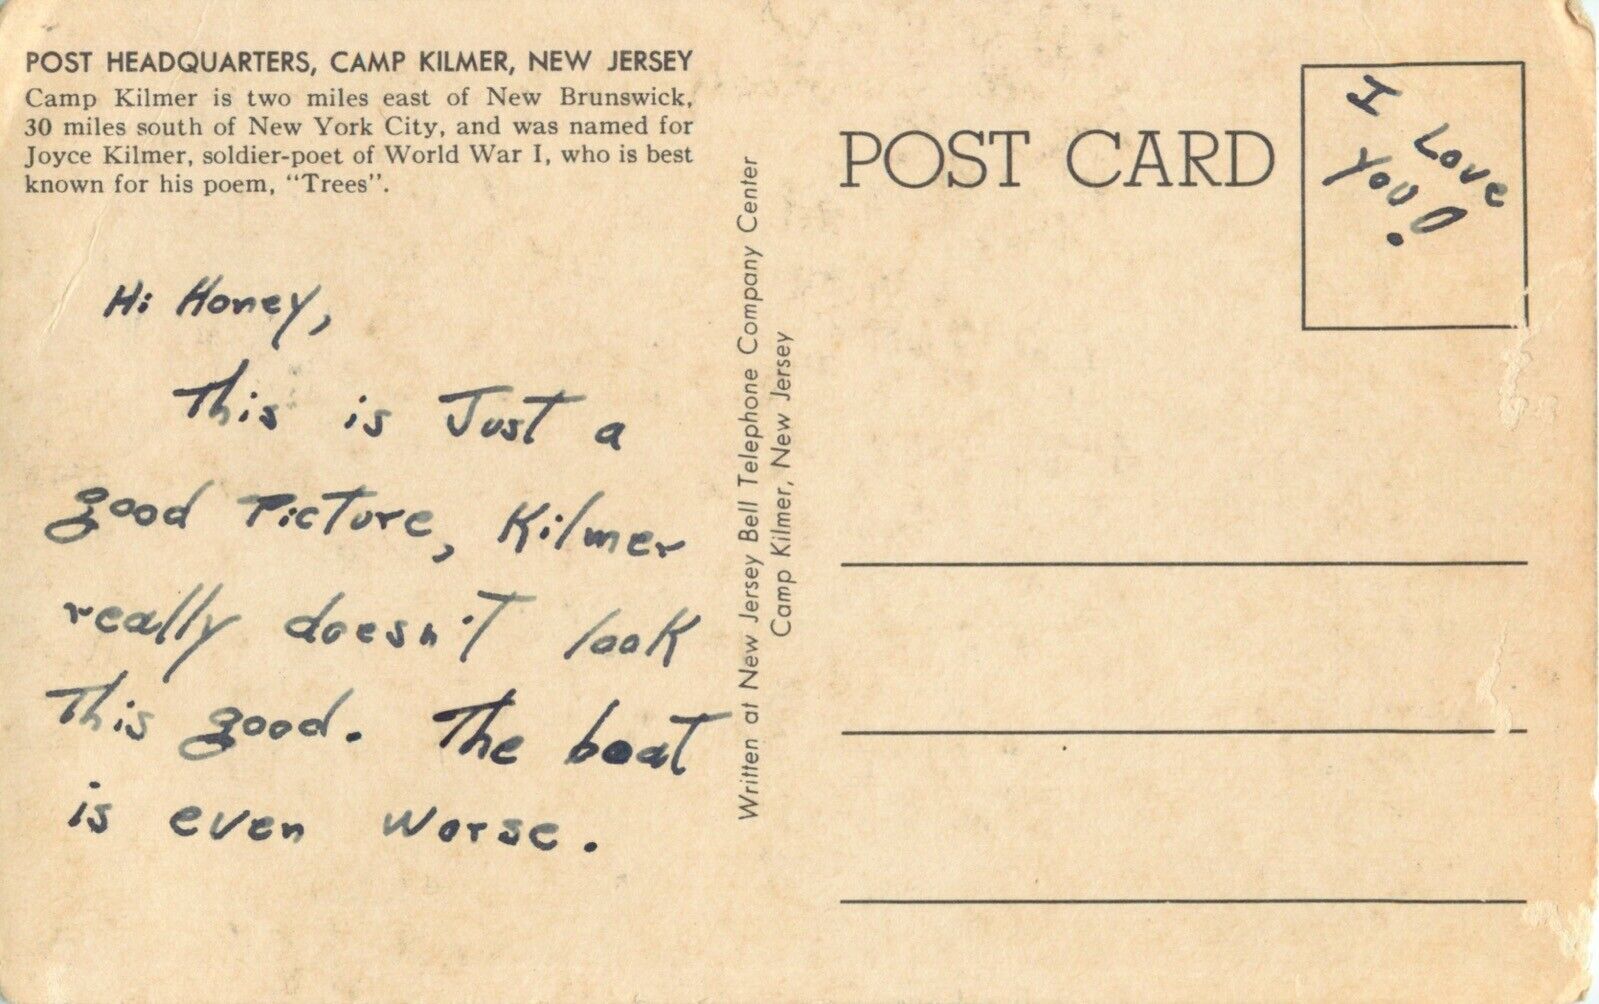 POST HEADQUARTERS, CAMP KILMER, NEW JERSEY
Camp Kilmer is two miles east of New Brunswick,
30 miles south of New York City, and was named for
Joyce Kilmer, soldier-poet of World War I, who is best
known for his poem, "Trees".
Hi Honey,
This is Just a
good Picture, Kilmer
really doesn't look
This good. The boat
is even worse.
Written at New Jersey Bell Telephone Company Center
Camp Kilmer, New Jersey
POST CARD
I
Love
you!